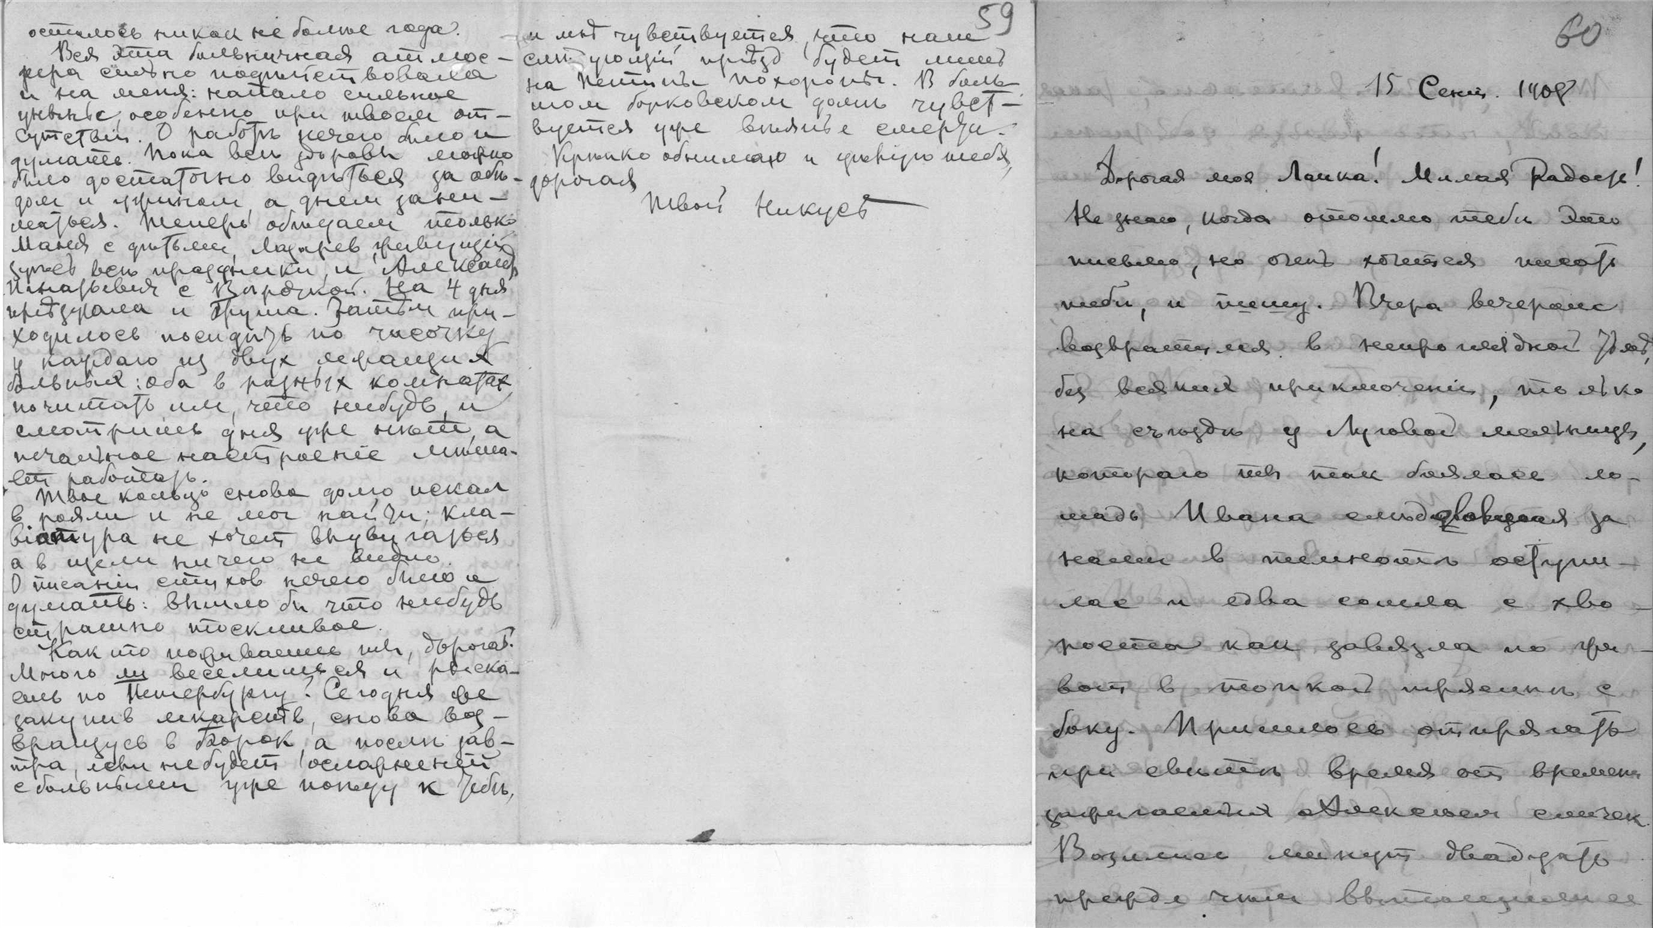 осталось никак не больше года.
Вся эта больничная атмос-
фера сильно подѣйствовала
и на меня: напало сильное
уныніе, особенно при твоем от-
сутствіи. О работѣ нечего было и
думать. Пока всѣ здоровы можно
было достаточно видѣться за обѣ-
дом и ужином а днем зани-
маться. Теперь обѣдаем только
Маня с дѣтьми, Лазарев, живущій
здѣсь всѣ праздники, и Александр
Игнатьевич с Вырѫжкой. На 4 дня
пріѣзжала и Груша. Затѣм при-
ходилось посидѣть по часочку
у каждаго из двух лежащих
больных: оба в разных комнатах,
почитать им что нибудь, и
смотришь дня уже нѣт, а
печальное настроеніе мѣша-
ет работать.
Твое кольцо снова долго искал
в рояли и не мог найти; кла-
віатура не хочет выдвигаться
а в щели ничего не видно.
О писаніи стихов нечего было и
думать: вышло бы что нибудь
страшно тоскливое.
Как то поживаешь ты, дорогая?
Много ли веселишься и рыска-
ешь по Петербургу? Сегодня же
закупив лекарств, снова воз-
вращусь в Борок, а послѣ зав-
тра, если не будет осложненій
с больными уже поѣду к тебѣ,
59
и мнѣ чувствуется, что наш
слѣдующій пріѣзд будет лишь
на Петины похороны. В боль-
шом борковском домѣ чувст-
вуется уже вѣяніе смерти.
Крѣпко обнимаю и цѣлую тебя,
дорогая
Твой Никусь
60
15 Сент. 1908
Дорогая моя Лапка! Милая Радость!
Не знаю, когда отошлю тебѣ это
письмо, но очень хочется писать
тебѣ, и пишу. Вчера вечером
возвратился в непроглядной тьмѣ,
без всяких приключеній, только
на съѣздѣ у Луговой мельницы,
котораго ты так боялась ло-
шадь Ивана слѣдовавшая за
нами в темнотѣ оступи-
лась и едва сошла с хво-
роста как завязла по жи-
вот в топкой трясинѣ с
боку. Пришлось отпрягать
при свѣтѣ время от времени
зажигаемых Алексѣем спичек.
Возились минут двадцать
прежде чѣм вытащили ее